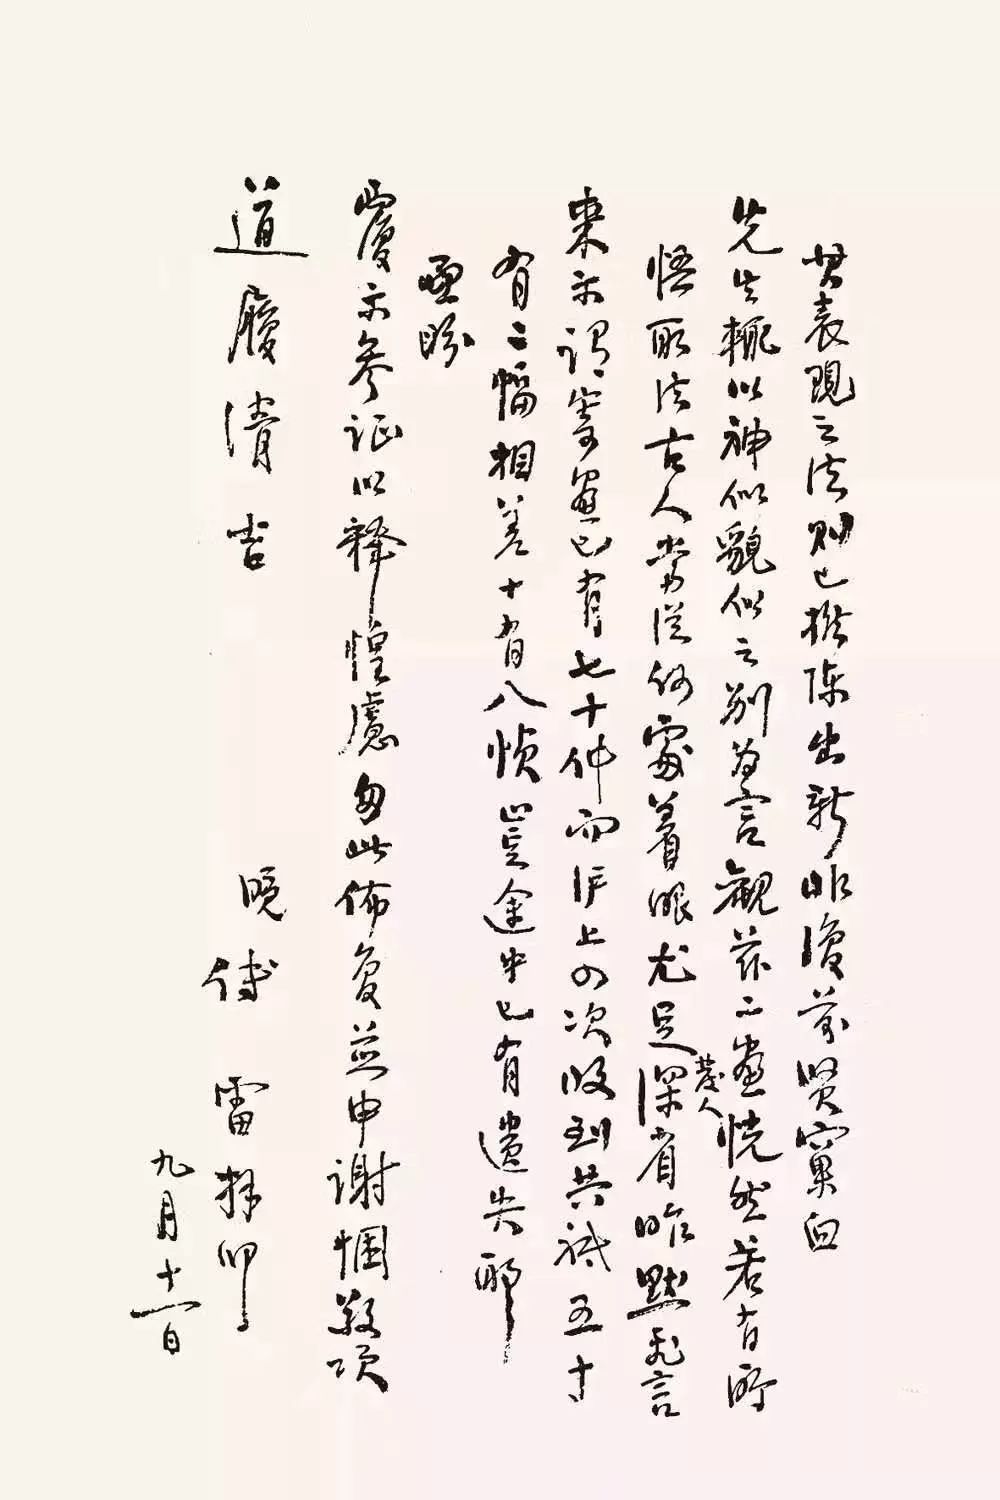 其表現之法則已推陳出新非復前賢窠臼
先生輒以神似貌似之別為言觀茲二畫恍然若有所
悟取法古人當從何處着眼尤足發人深省昨默飛言
來示謂寄畫已有七十件而沪上四次收到共祗五十
有二幅相差十有八幀豈途中已有遺失耶
亟盼
覆示參证以釋惶慮匆此佈复並申謝悃敬頌
道履清吉
晚傅雷拜叩
九月十一日